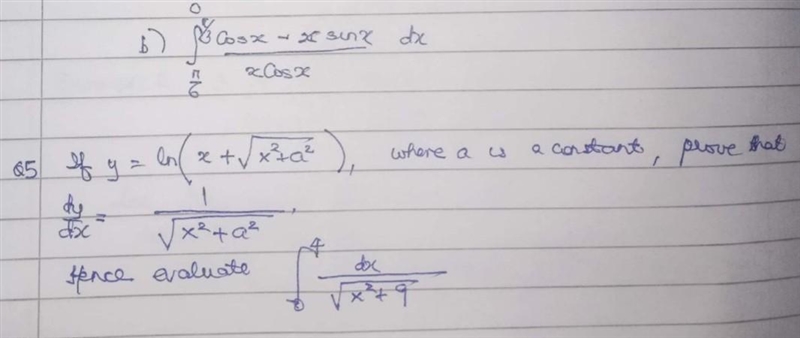 0
b) ∫ π/3 π/6 Cosx - x sinx / xCosx dx
Q5 If y = ln(x + √x²+a²), where a is a constant, prove that
dy/dx = 1/√x²+a²,
Hence evaluate ∫ 4 0 dx/√x²+9